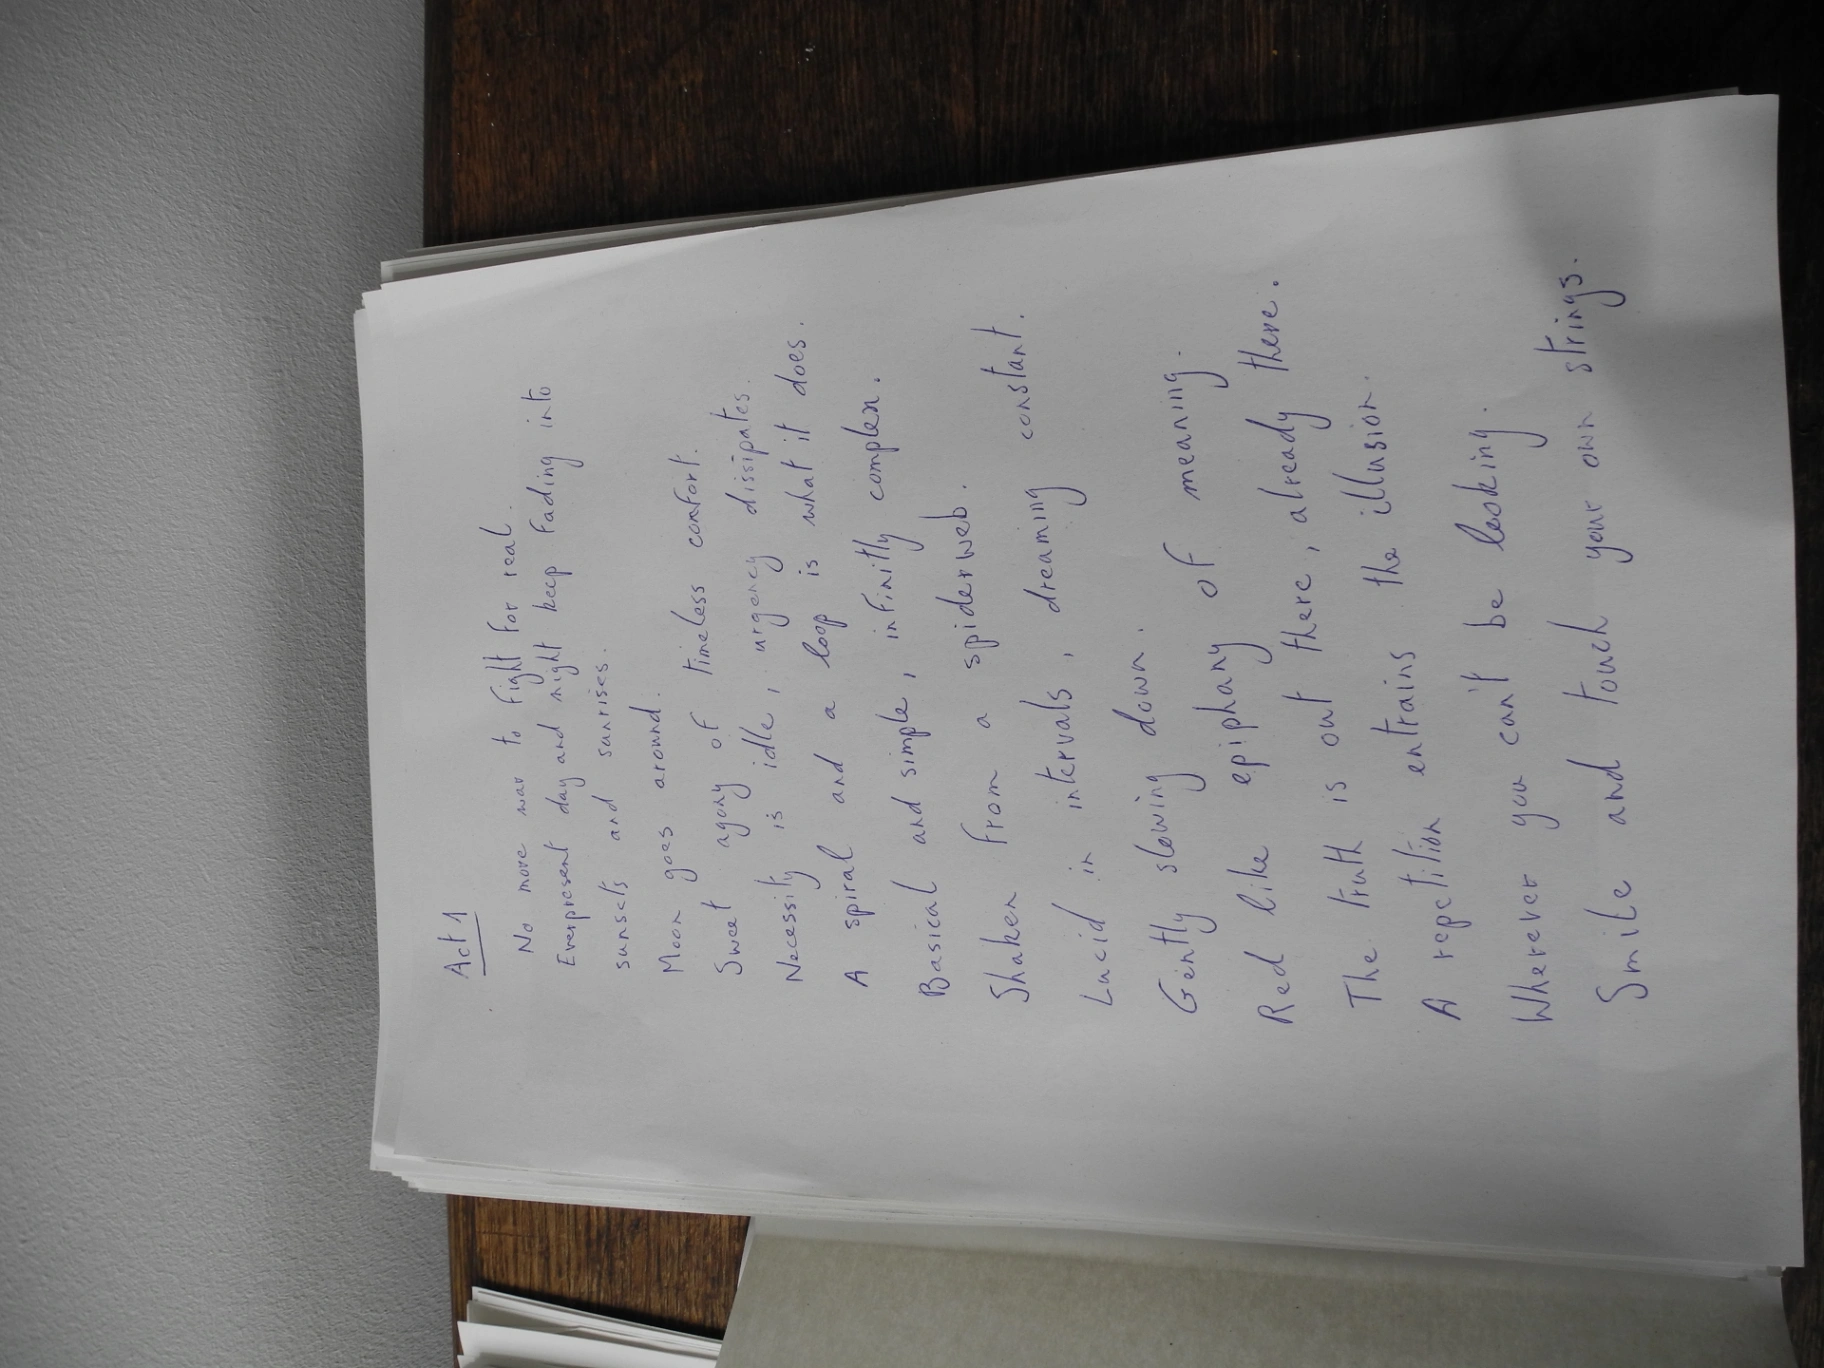 Act 1
No more war to fight for real.
Everpresent day and night keep fading into
sunsets and sunrises.
Moon goes around.
Sweet agony of timeless comfort.
Necessity is idle, urgency dissipates.
A spiral and a loop is what it does.
Basical and simple, infinitly complex.
Shaken from a spiderweb.
Lucid in intervals, dreaming constant.
Gently slowing down.
Red like epiphany of meaning.
The truth is out there, already there.
A repetition entrains the illusion.
Wherever you can't be looking.
Smile and touch your own strings.